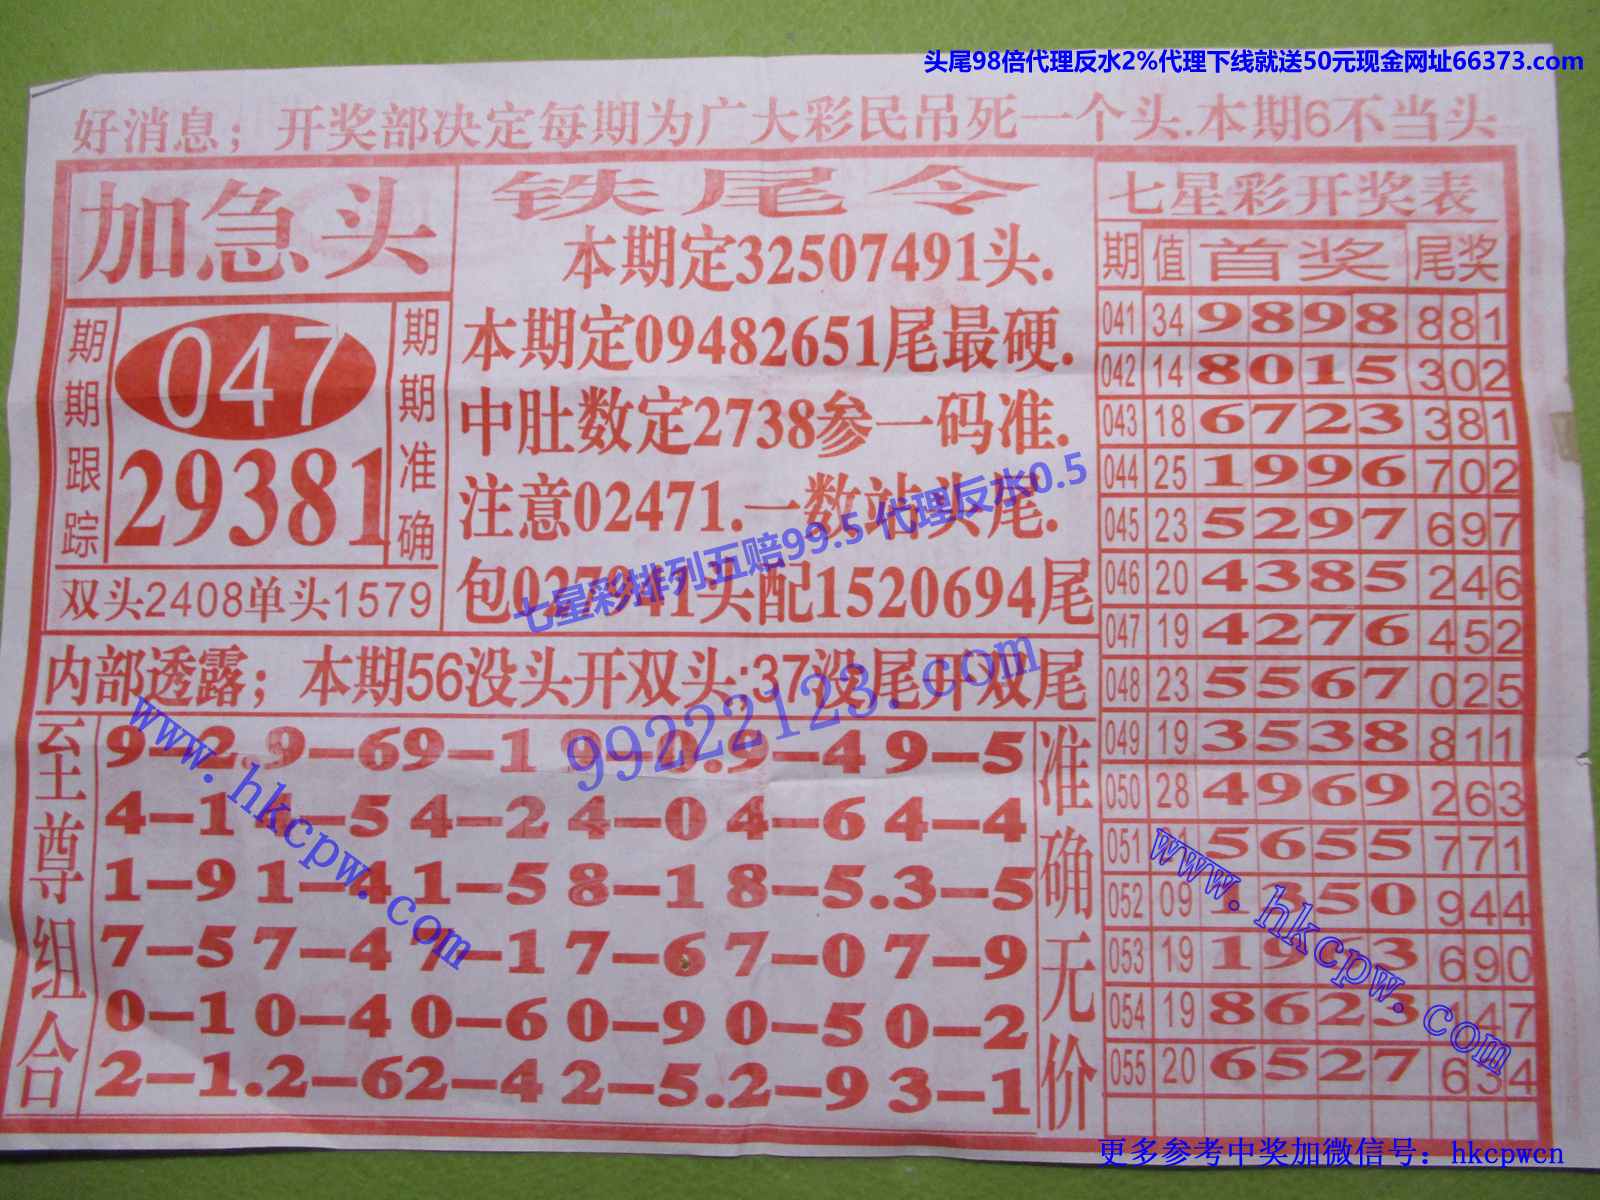 头尾98倍代理反水2%代理下线就送50元现金网址66373.com
好消息；开奖部决定每期为广大彩民吊死一个头.本期6不当头
加急头
期期跟踪
047
29381
期期准确
双头2408单头1579
铁尾令
本期定32507491头.
本期定09482651尾最硬.
中肚数定2738参一码准.
注意02471.一数站头尾.
包027941头配1520694尾
七星彩排列五赔99.5 代理反水0.5
内部透露；本期56没头开双头;37没尾开双尾
99222123.com
至尊组合
9-2.9-69-1 9-0.9-4 9-5
4-1 4-5 4-2 4-0 4-6 4-4
1-9 1-4 1-5 8-1 8-5.3-5
7-5 7-4 7-1 7-6 7-0 7-9
0-1 0-4 0-6 0-9 0-5 0-2
2-1.2-62-4 2-5.2-9 3-1
准确无价
www.hkcpw.com
七星彩开奖表
期 值 首奖 尾奖
041 34 9898 881
042 14 8015 302
043 18 6723 381
044 25 1996 702
045 23 5297 697
046 20 4385 246
047 19 4276 452
048 23 5567 025
049 19 3538 811
050 28 4969 263
051 21 5655 771
052 09 1350 944
053 19 19 3 690
054 19 8623 47
055 20 6527 634
www.hkcpw.com
更多参考中奖加微信号：hkcpwcn